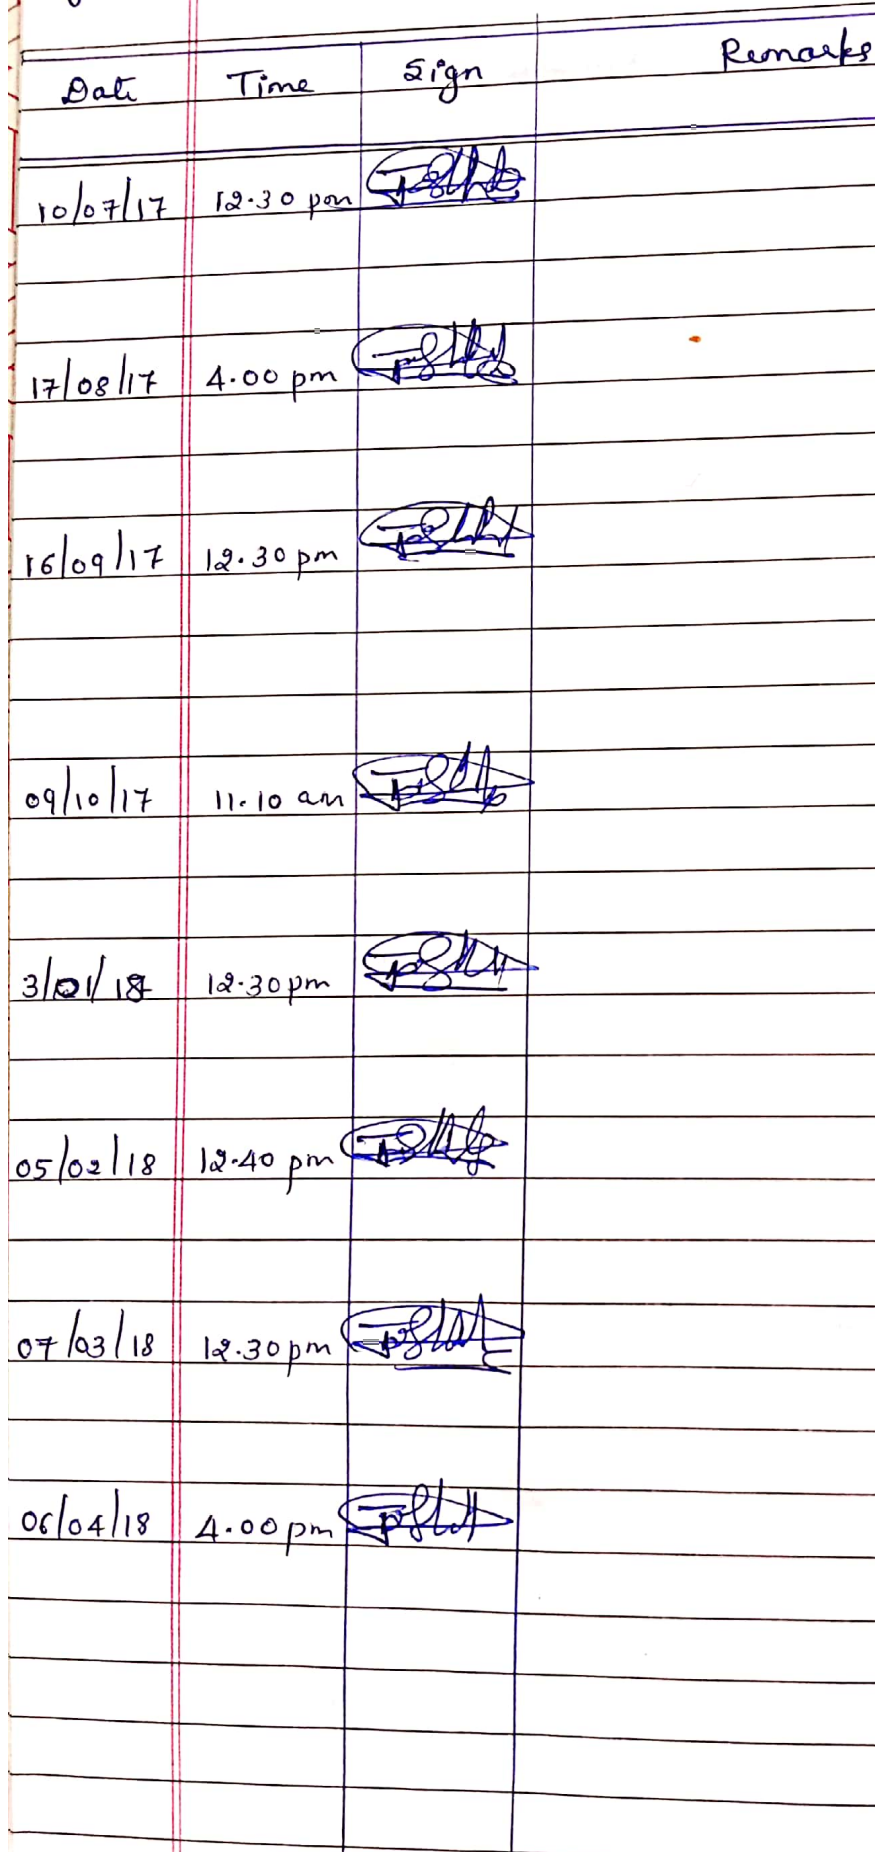 Date Time Sign Remarks
10/07/17 12.30 pm
17/08/17 4.00 pm
16/09/17 12.30 pm
09/10/17 11.10 am
3/01/18 12.30 pm
05/02/18 12.40 pm
07/03/18 12.30 pm
06/04/18 4.00 pm